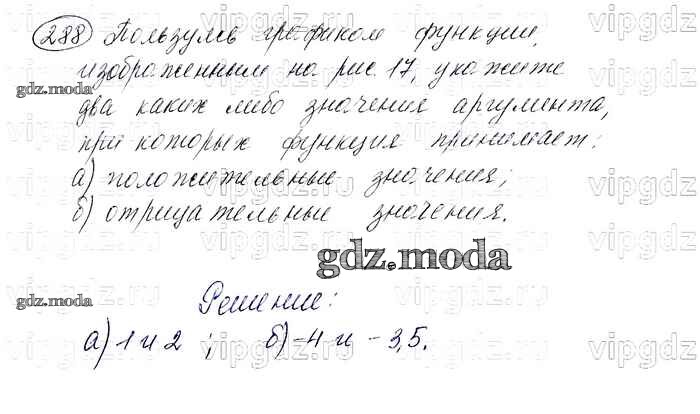 288 Пользуясь графиком функции,
изображенным на рис. 17, укажите
gdz.moda
два каких либо значения аргумента,
при которых функция принимает:
а) положительные значения;
б) отрицательные значения.
gdz.moda
gdz.moda
Решение:
а) 1 и 2 ; б) -4 и -3,5.
vipgdz.ru